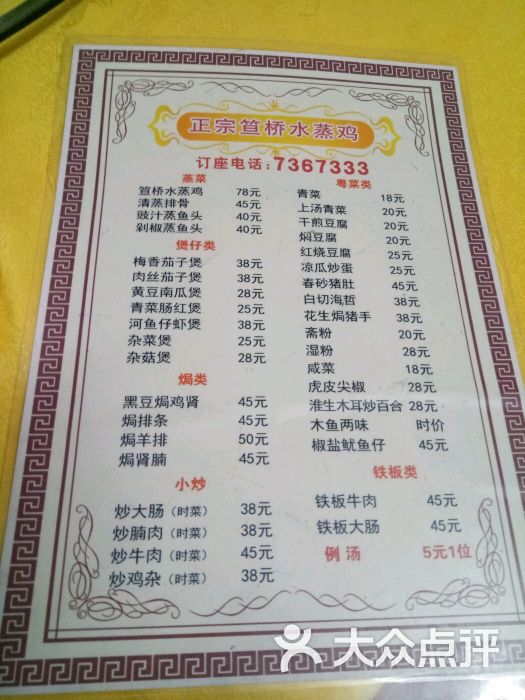 正宗笪桥水蒸鸡
订座电话:7367333
蒸菜
笪桥水蒸鸡 78元
清蒸排骨 45元
豉汁蒸鱼头 40元
剁椒蒸鱼头 40元
煲仔类
梅香茄子煲 38元
肉丝茄子煲 38元
黄豆南瓜煲 28元
青菜肠红煲 25元
河鱼仔虾煲 38元
杂菜煲 25元
杂菇煲 28元
焗类
黑豆焗鸡肾 45元
焗排条 45元
焗羊排 50元
焗肾腩 45元
小炒
炒大肠(时菜) 38元
炒腩肉(时菜) 38元
炒牛肉(时菜) 45元
炒鸡杂(时菜) 38元
粤菜类
青菜 18元
上汤青菜 20元
干煎豆腐 20元
焖豆腐 20元
红烧豆腐 25元
凉瓜炒蛋 25元
春砂猪肚 45元
白切海哲 38元
花生焗猪手 38元
斋粉 20元
湿粉 28元
咸菜 18元
虎皮尖椒 28元
淮生木耳炒百合 28元
木鱼两味 时价
椒盐鱿鱼仔 45元
铁板类
铁板牛肉 45元
铁板大肠 45元
例汤 5元1位
大众点评